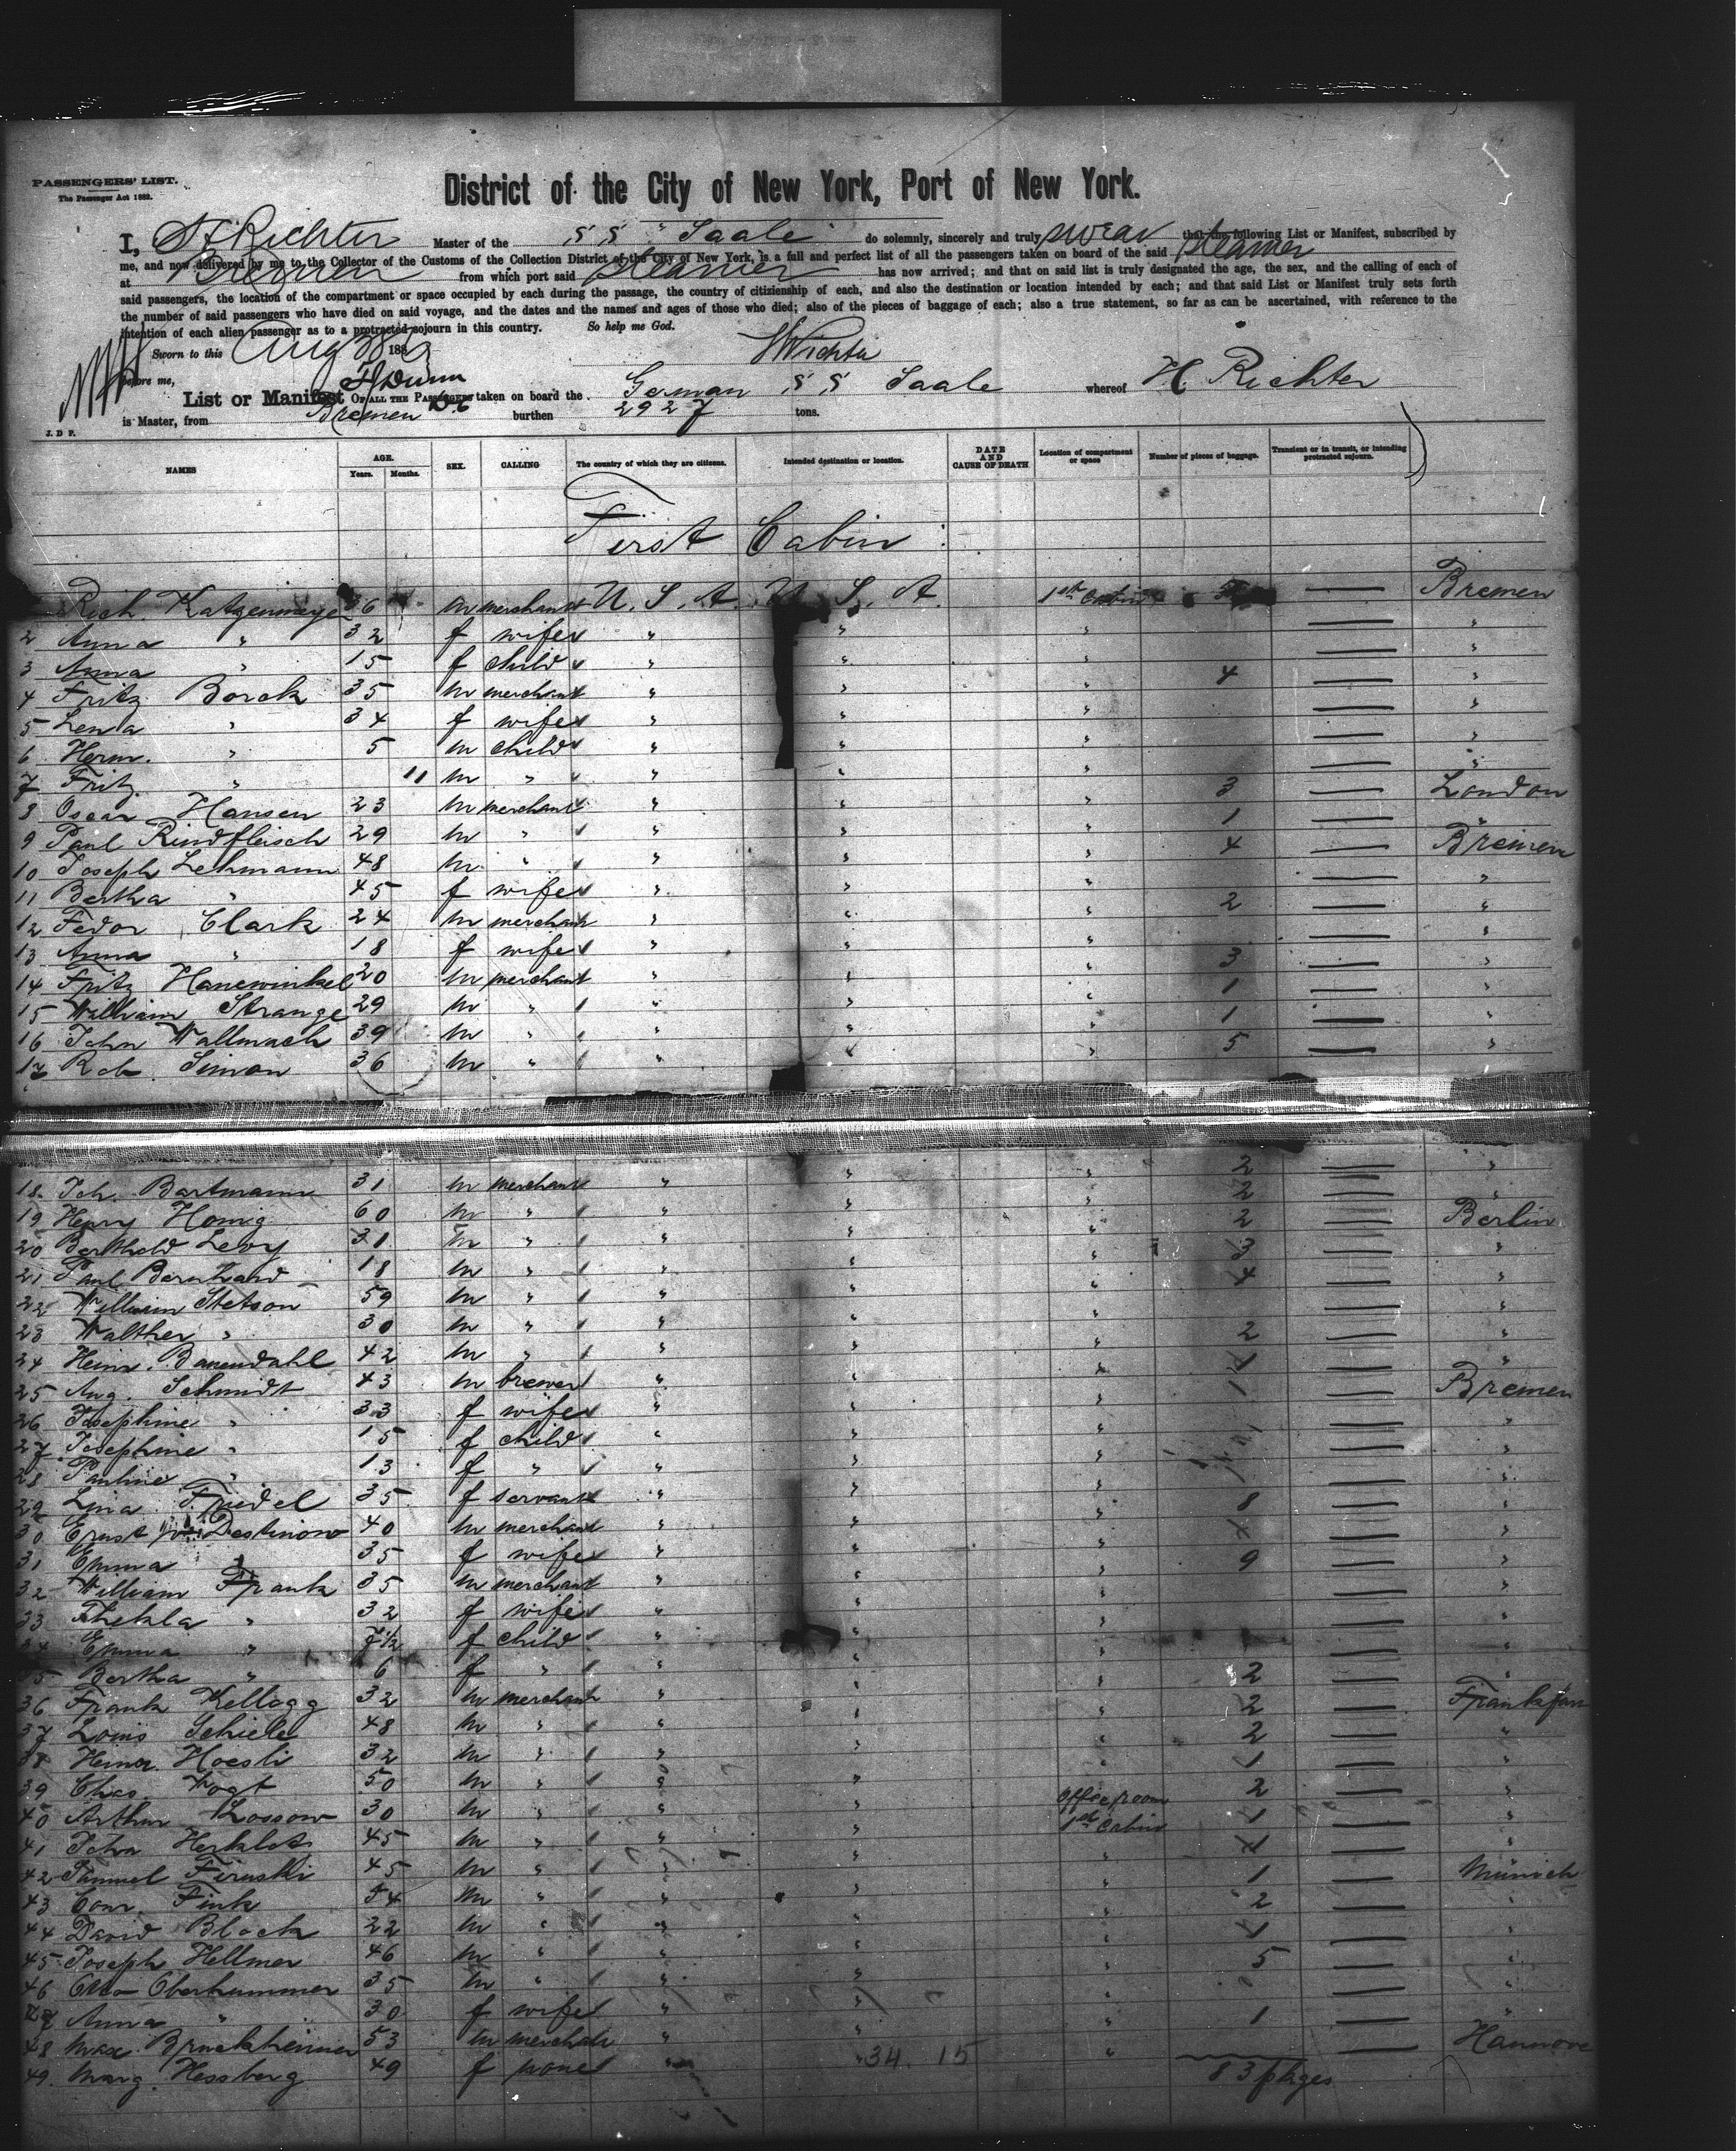 PASSENGERS' LIST.
The Passenger Act 1882.
District of the City of New York, Port of New York.
I, H Richter Master of the S S "Saale" do solemnly, sincerely and truly swear that the following List or Manifest, subscribed by
me, and now delivered by me to the Collector of the Customs of the Collection District of the City of New York, is a full and perfect list of all the passengers taken on board of the said steamer
at Bremen from which port said steamer has now arrived; and that on said list is truly designated the age, the sex, and the calling of each of
said passengers, the location of the compartment or space occupied by each during the passage, the country of citizienship of each, and also the destination or location intended by each; and that said List or Manifest truly sets forth
the number of said passengers who have died on said voyage, and the dates and the names and ages of those who died; also of the pieces of baggage of each; also a true statement, so far as can be ascertained, with reference to the
intention of each alien passenger as to a protracted sojourn in this country. So help me God.
Sworn to this Aug 188 HRichter
before me,
List or Manifest OF ALL THE PASSENGERS taken on board the German S S Saale whereof H. Richter
is Master, from Bremen burthen 2927 tons.
J. D P.
NAMES AGE. Years. Months. SEX. CALLING The country of which they are citizens. Intended destination or location. DATE AND CAUSE OF DEATH Location of compartment or space Number of pieces of baggage. Transient or in transit, or intending protracted sojourn.
First Cabin
Rich. Katzenmeyer 36 m merchant U. S. A. U. S. A. 1st Cabin — Bremen
2 Anna " 32 f wife " " " — "
3 Anna " 15 f child " " " — "
4 Fritz Borck 35 m merchant " " " 4 — "
5 Lena " 34 f wife " " " — "
6 Herm. " 5 m child " " " — "
7 Fritz " 11 m " " " " — "
8 Oscar Hansen 23 m merchant " " " 3 — London
9 Paul Rindfleisch 29 m " " " " 1 — "
10 Joseph Lehmann 48 m " " " " 4 — Bremen
11 Bertha " 45 f wife " " " — "
12 Fedor Clark 24 m merchant " " " 2 — "
13 Anna " 18 f wife " " " — "
14 Fritz Hanewinkel 20 m merchant " " " 3 — "
15 William Strange 29 m " " " " 1 — "
16 John Wallmach 39 m " " " " 1 — "
17 Rob. Simon 36 m " " " " 5 — "
18. Joh. Bartmann 31 m merchant " " " 2 — "
19 Henry Honig 60 m " " " " 2 — "
20 Berthold Levy 31 m " " " " 2 — Berlin
21 Paul Bernhard 18 m " " " " 3 — "
22 William Stetson 59 m " " " " 4 — "
23 Walther " 30 m " " " " — "
24 Heinr. Bauendahl 42 m " " " " 2 — "
25 Aug. Schmidt 43 m brewer " " " 1 — "
26 Josephine " 33 f wife " " " 1 — Bremen
27 Josephine " 15 f child " " " — "
28 Pauline " 13 f " " " " — "
29 Lina Friedel 35 f servant " " " — "
30 Ernst Destinon 40 m merchant " " " 8 — "
31 Emma " 35 f wife " " " — "
32 William Frank 35 m merchant " " " 9 — "
33 Thekla " 32 f wife " " " — "
34 Emma " 7½ f child " " " — "
35 Bertha " 6 f " " " " — "
36 Frank Kellogg 32 m merchant " " " 2 — "
37 Louis Schiele 48 m " " " " 2 — Frankfurt
38 Heinr. Hoesli 32 m " " " " 2 — "
39 Chas. Vogt 50 m " " " " 1 — "
40 Arthur Lossow 30 m " " " Office room 2 — "
41 John Herklots 45 m " " " 1st Cabin 1 — "
42 Samuel Firuski 45 m " " " " 1 — "
43 Conr. Fink 54 m " " " " 1 — Munich
44 David Block 22 m " " " " 2 — "
45 Joseph Hellmer 46 m " " " " 1 — "
46 Otto Oberhummer 35 m " " " " 5 — "
47 Anna " 30 f wife " " " — "
48 Max Bruckheimer 53 m merchant " " " 1 — "
49. Marg. Hessberg 49 f none " " " — Hannover
34. 15
83 pkges